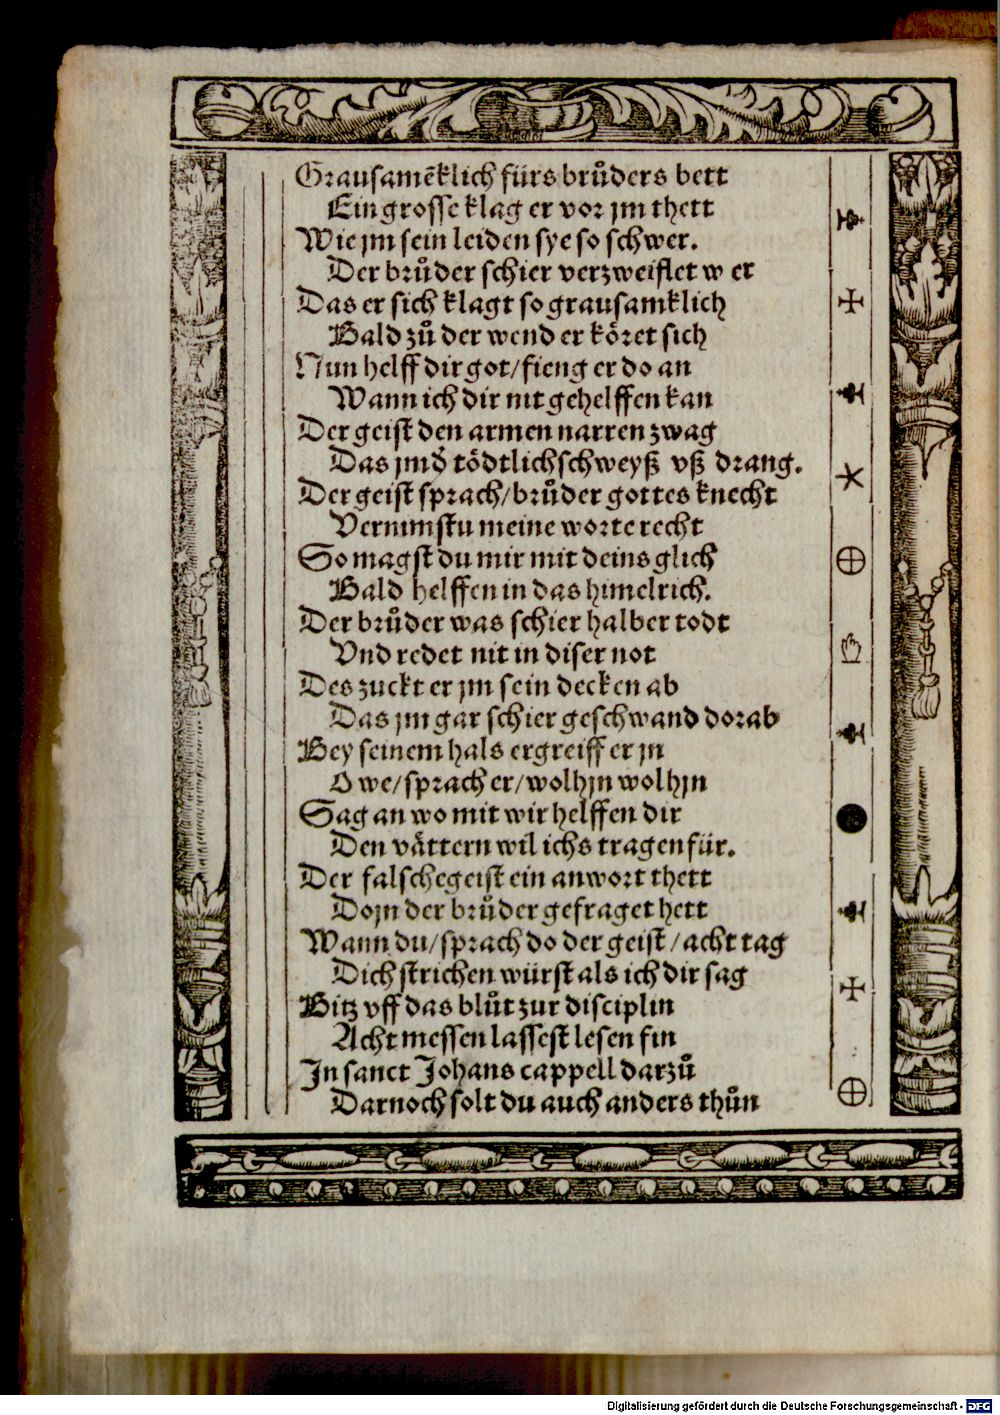 Grausamẽklich fürs brůders bett
Ein grosse klag er vor jm thett
Wie jm sein leiden sye so schwer.
Der brůder schier verzweiflet w er
Das er sich klagt so grausamklich
Bald zů der wend er köret sich
Nun helff dir got/fieng er do an
Wann ich dir nit gehelffen kan
Der geist den armen narren zwag
Das jm d̕ tödtlich schweyß vß drang.
Der geist sprach/brůder gottes knecht
Vernimstu meine worte recht
So magst du mir mit deins glich
Bald helffen in das himelrich.
Der brůder was schier halber todt
Vnd redet nit in diser not
Des zuckt er jm sein decken ab
Das jm gar schier geschwand dorab
Bey seinem hals ergreiff er jn
O we/sprach er/wolhjn wolhjn
Sag an wo mit wir helffen dir
Den våttern wil ichs tragen für.
Der falsche geist ein anwort thett
Do jn der brůder gefraget hett
Wann du/sprach do der geist/acht tag
Dich strichen würst als ich dir sag
Bitz vff das blůt zur disciplin
Acht messen lassest lesen fin
In sanct Johans cappell darzů
Darnoch solt du auch anders thůn
Digitalisierung gefördert durch die Deutsche Forschungsgemeinschaft - DFG